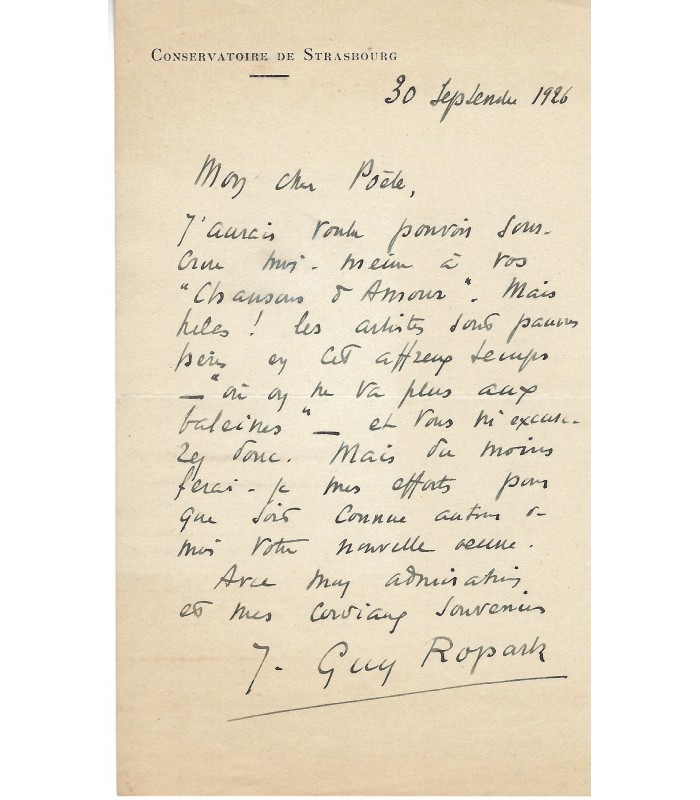 CONSERVATOIRE DE STRASBOURG
30 Septembre 1926
Mon cher Poète,
J'aurais voulu pouvoir sous-
crire moi-même à vos
"Chansons d'Amour". Mais
hélas ! les artistes sont pauvres
hères en cet affreux temps
— "où on ne va plus aux
baleines" — et vous m'excuse-
rez donc. Mais du moins
ferai-je mes efforts pour
que soit connue autour de
moi votre nouvelle œuvre.
Avec mon admiration
et mes cordiaux souvenirs
J. Guy Ropartz